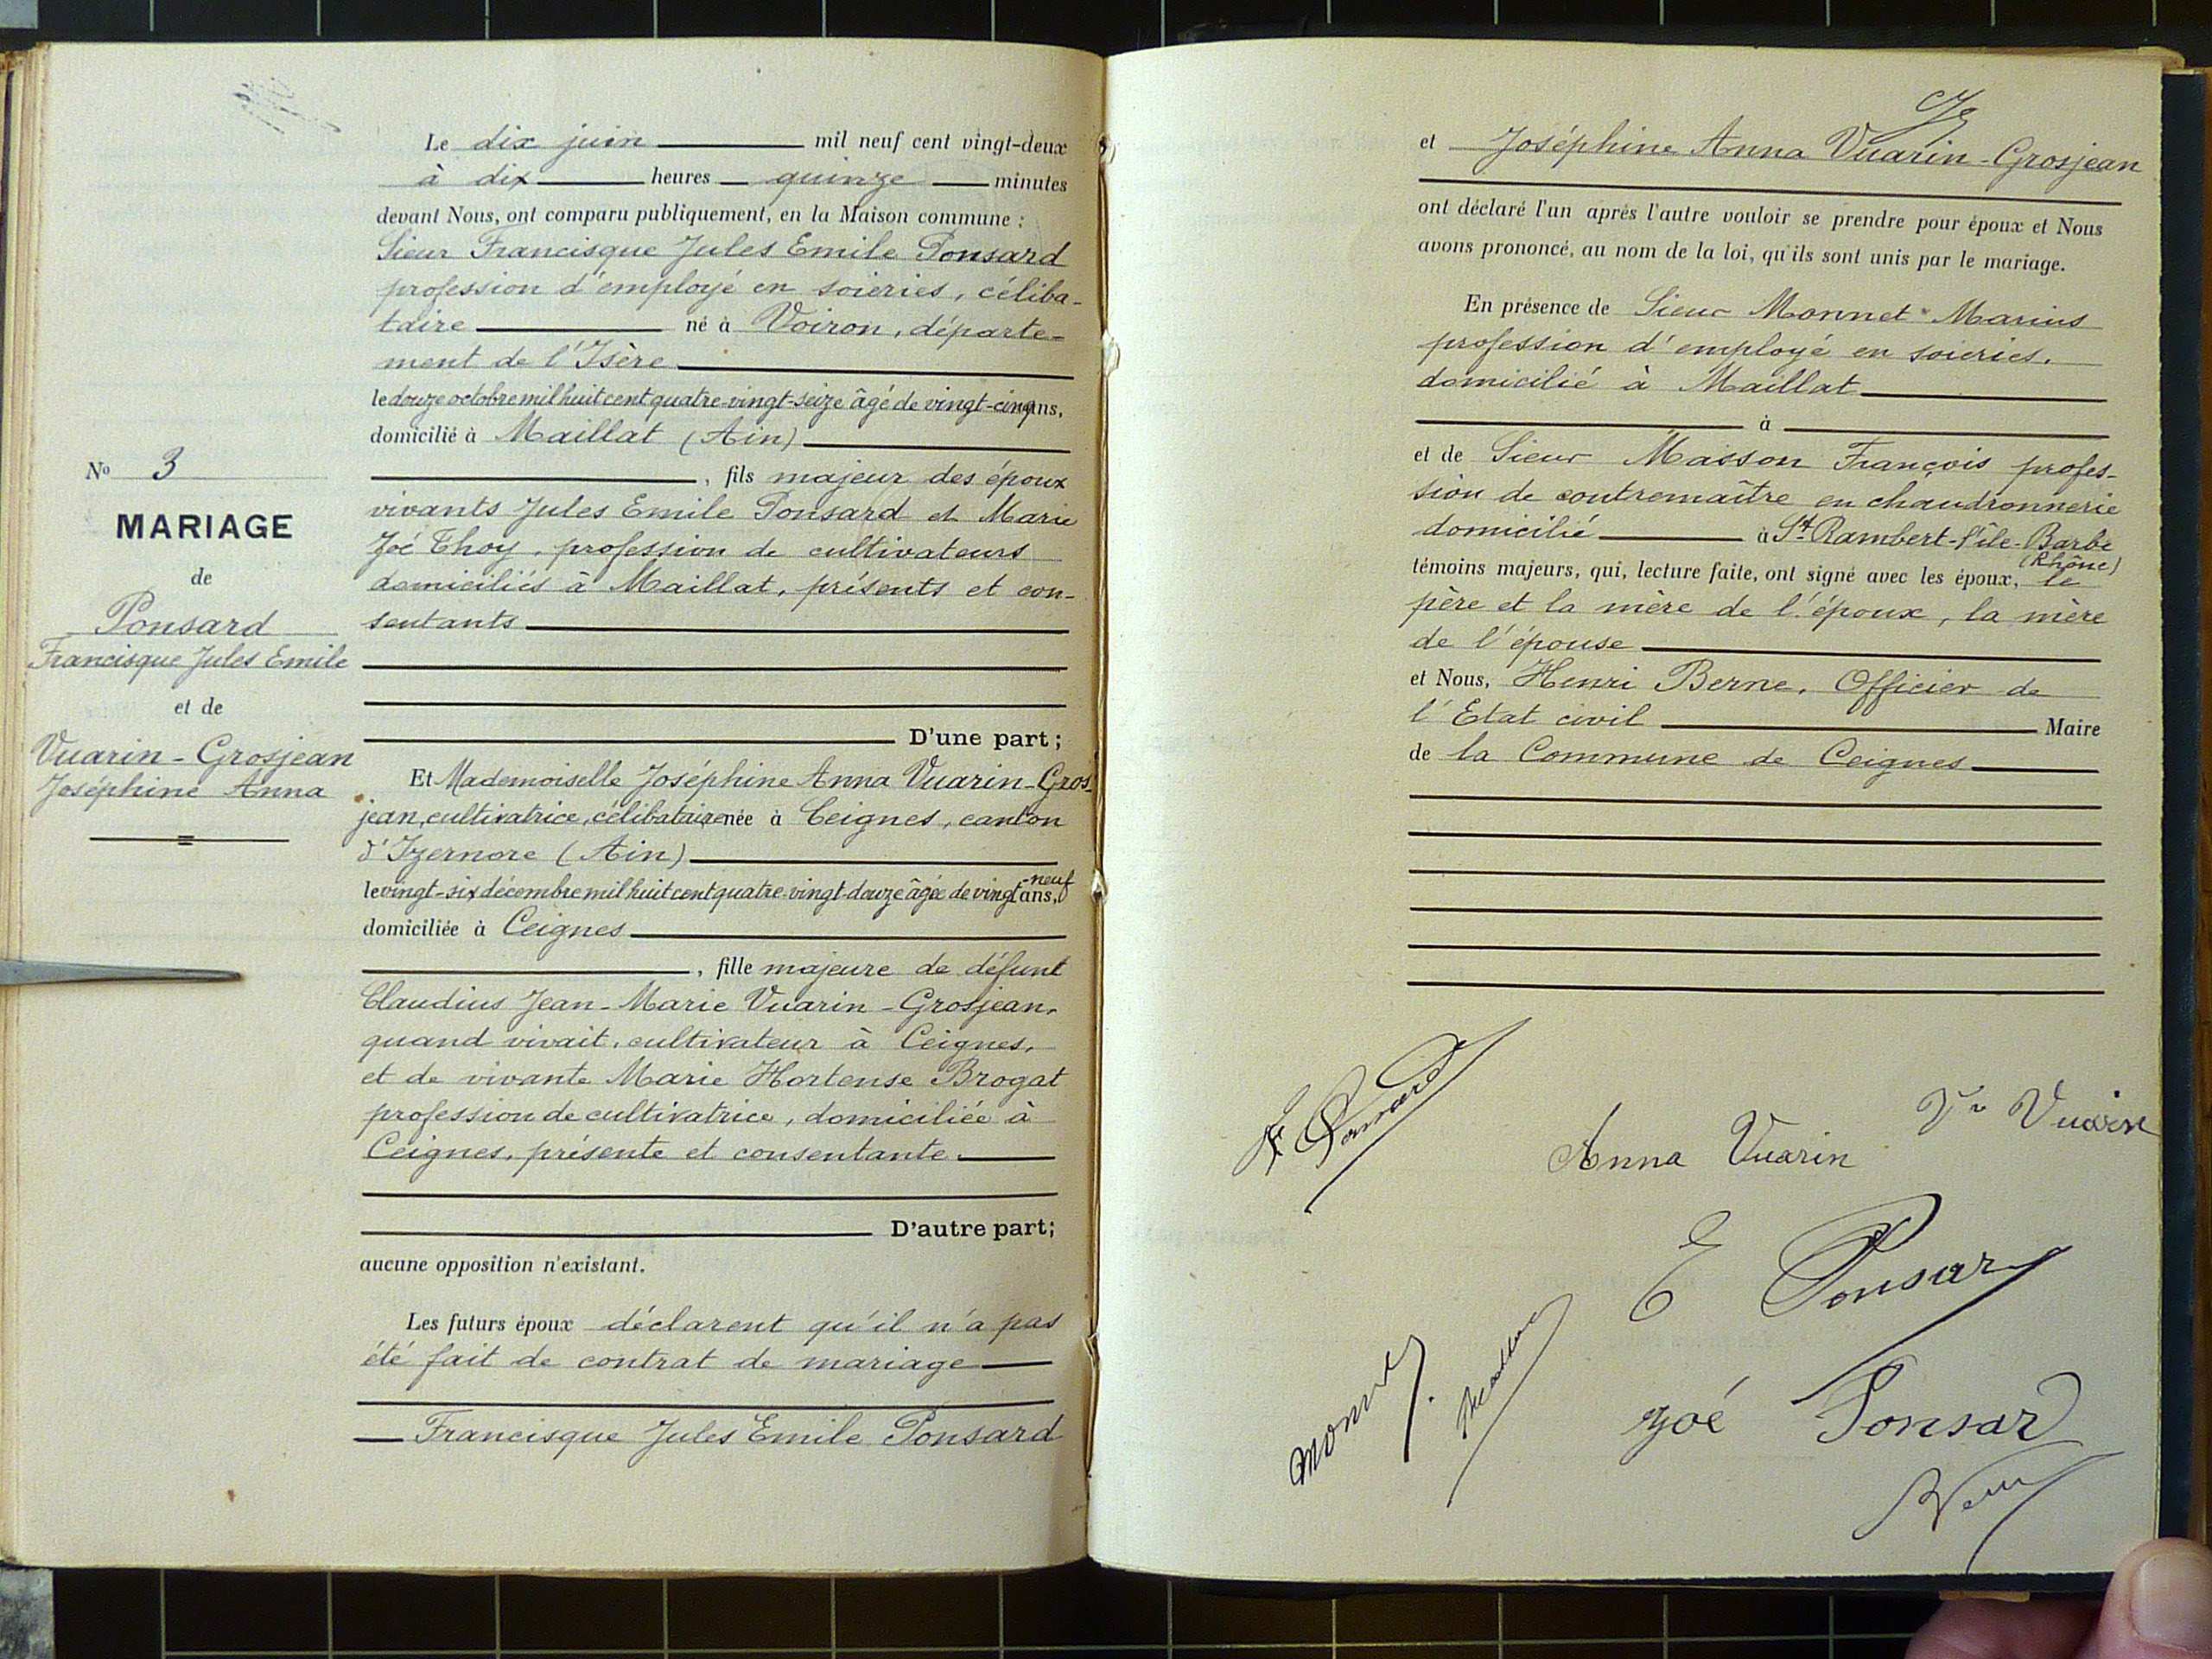 N° 3
MARIAGE
de
Ponsard
Francisque Jules Emile
et de
Vuarin-Grosjean
Joséphine Anna
Le dix juin mil neuf cent vingt-deux
à dix heures quinze minutes
devant Nous, ont comparu publiquement, en la Maison commune :
Sieur Francisque Jules Emile Ponsard
profession d'employé en soieries, céliba-
taire né à Voiron, départe-
ment de l'Isère
le douze octobre mil huit cent quatre-vingt-seize âgé de vingt-cinq ans,
domicilié à Maillat (Ain)
, fils majeur des époux
vivants Jules Emile Ponsard et Marie
Zoé Thoy, profession de cultivateurs
domiciliés à Maillat, présents et con-
sentants
D'une part ;
Et Mademoiselle Joséphine Anna Vuarin-Gros-
jean, cultivatrice, célibataire née à Ceignes, canton
d'Izernore (Ain)
le vingt-six décembre mil huit cent quatre-vingt-douze âgée de vingt-neuf ans,
domiciliée à Ceignes
, fille majeure de défunt
Claudius Jean-Marie Vuarin-Grosjean,
quand vivait, cultivateur à Ceignes,
et de vivante Marie Hortense Brogat
profession de cultivatrice, domiciliée à
Ceignes, présente et consentante.
D'autre part ;
aucune opposition n'existant.
Les futurs époux déclarent qu'il n'a pas
été fait de contrat de mariage
Francisque Jules Emile Ponsard
et Joséphine Anna Vuarin-Grosjean
ont déclaré l'un après l'autre vouloir se prendre pour époux et Nous
avons prononcé, au nom de la loi, qu'ils sont unis par le mariage.
En présence de Sieur Monnet Marius
profession d'employé en soieries.
domicilié à Maillat
à
et de Sieur Masson François profes-
sion de contremaître en chaudronnerie
domicilié à St Rambert-l'île-Barbe
(Rhône)
témoins majeurs, qui, lecture faite, ont signé avec les époux, le
père et la mère de l'époux, la mère
de l'épouse
et Nous, Henri Berne, Officier de
l'Etat civil Maire
de la Commune de Ceignes
F Ponsard
Anna Vuarin
Vve Vuarin
E Ponsard
Monnet
Zoé Ponsard
Berne